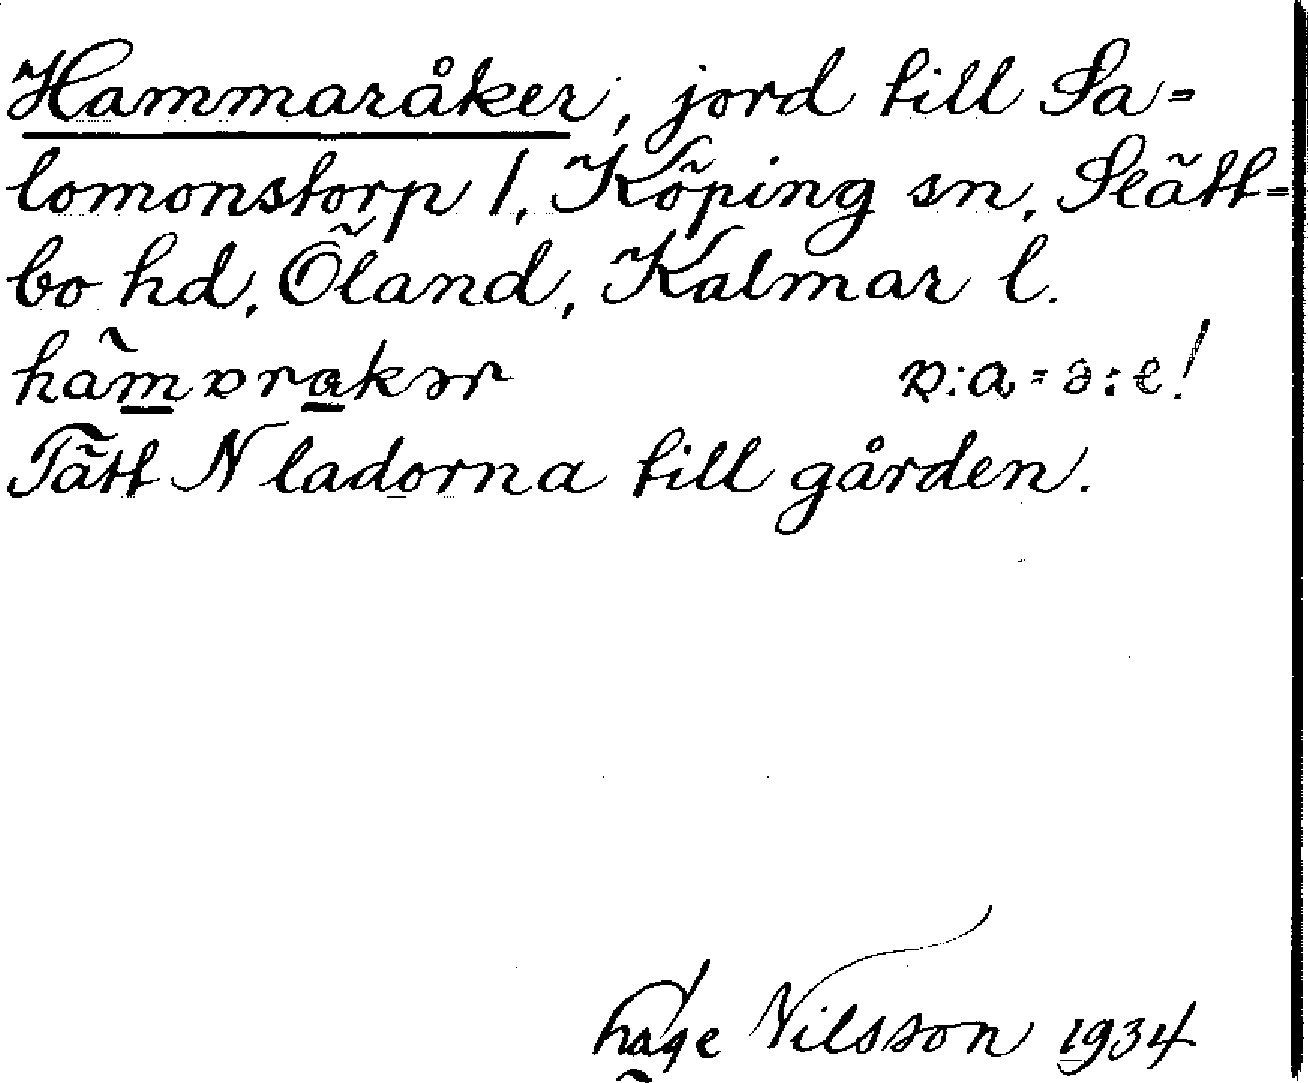 Hammaråker, jord till Sa=
lomonstorp 1, Köping sn, Slätt=
bo hd, Öland, Kalmar l.
hàmɒrakər ɒ:a = ə:e!
Tätt N ladorna till gården.
Nilsson 1934